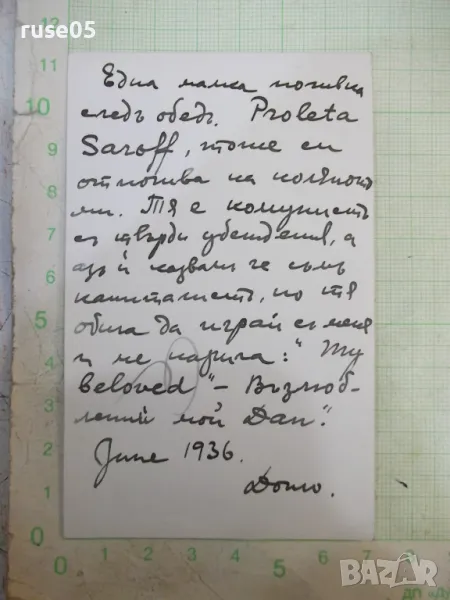 ruse05
Една малка почивка
следъ обедъ. Proleta
Saroff, тоже си
отпочива на
ми. Тя е комунистъ
съ твърди убеждения, а
азъ й казвамъ че съмъ
капиталистъ, но тя
обича да играй съ меня
и ме нарича: "My
beloved" – Възлюб-
лений мой Dan".
June 1936.
12
11
10
9
8
7
6
5
4
3
2
1
0
0 1 2 3 4 5 6 7
BAZAR